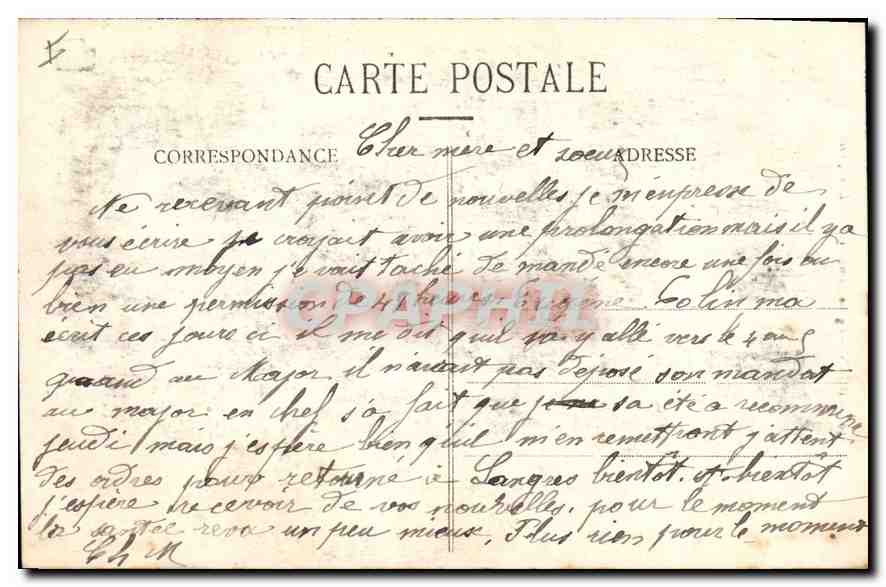 CARTE POSTALE
CORRESPONDANCE
ADRESSE
Cher mère et soeur
Ne recevant point de nouvelles je m'enpresse de
vous écrire je croyait avoir une prolongation mais il y a
pas eu moyen je vait taché de mandé encore une fois ou
bien une permission de 48 heures. Eugène Colin ma
écrit ces jours ci il me dit quil ira y allé vers le 4 ou 5
quand au Major il n'avait pas déposé son mandat
au major en chef s'a fait que sa été a recommence
jeudi mais j'espère bien qu'il m'en remettront j'attent
des ordres pour retourné à Langres bientôt. A bientôt
j'espère recevoir de vos nouvelles. pour le moment
la santée reva un peu mieux. Plus rien pour le moment
PAPHIL